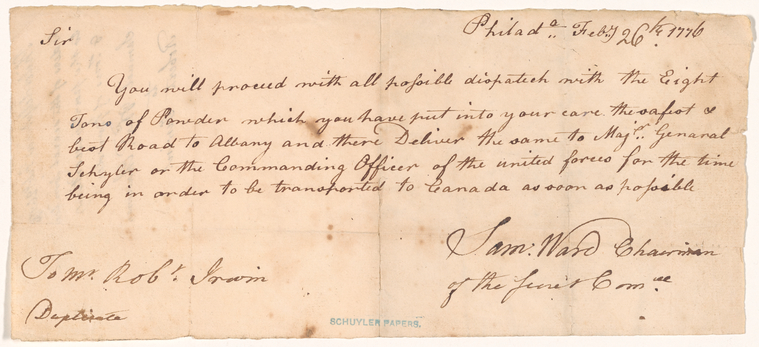 Philad.ª Feb.y 26th 1776
Sir
You will proceed with all possible dispatch with the Eight
Tons of Powder which you have put into your care the safest &
best Road to Albany and there Deliver the same to Maj.r General
Schyler or the Commanding Officer of the united forces for the time
being in order to be transported to Canada as soon as possible
Sam. Ward Chairman
of the Secret Com.ee
To Mr. Rob.t Irwin
Duplicate
SCHUYLER PAPERS.